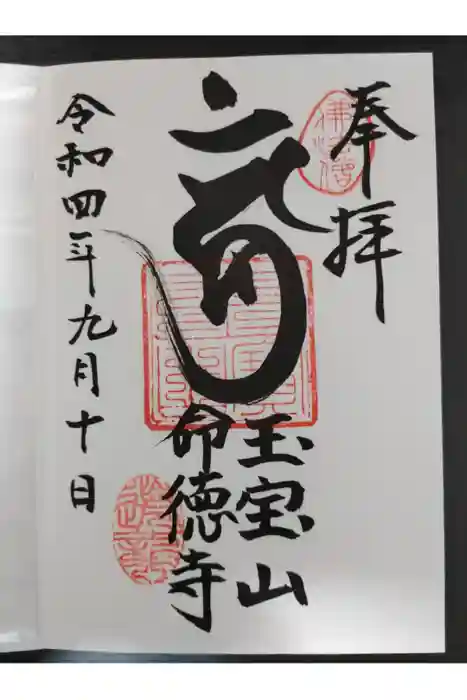 奉拝
佛法僧
玉宝山
命徳寺
令和四年九月十日